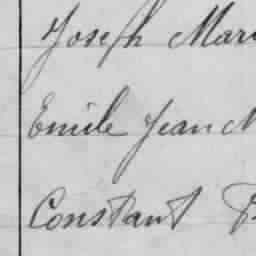 Joseph Mari
Emile Jean M
Constant